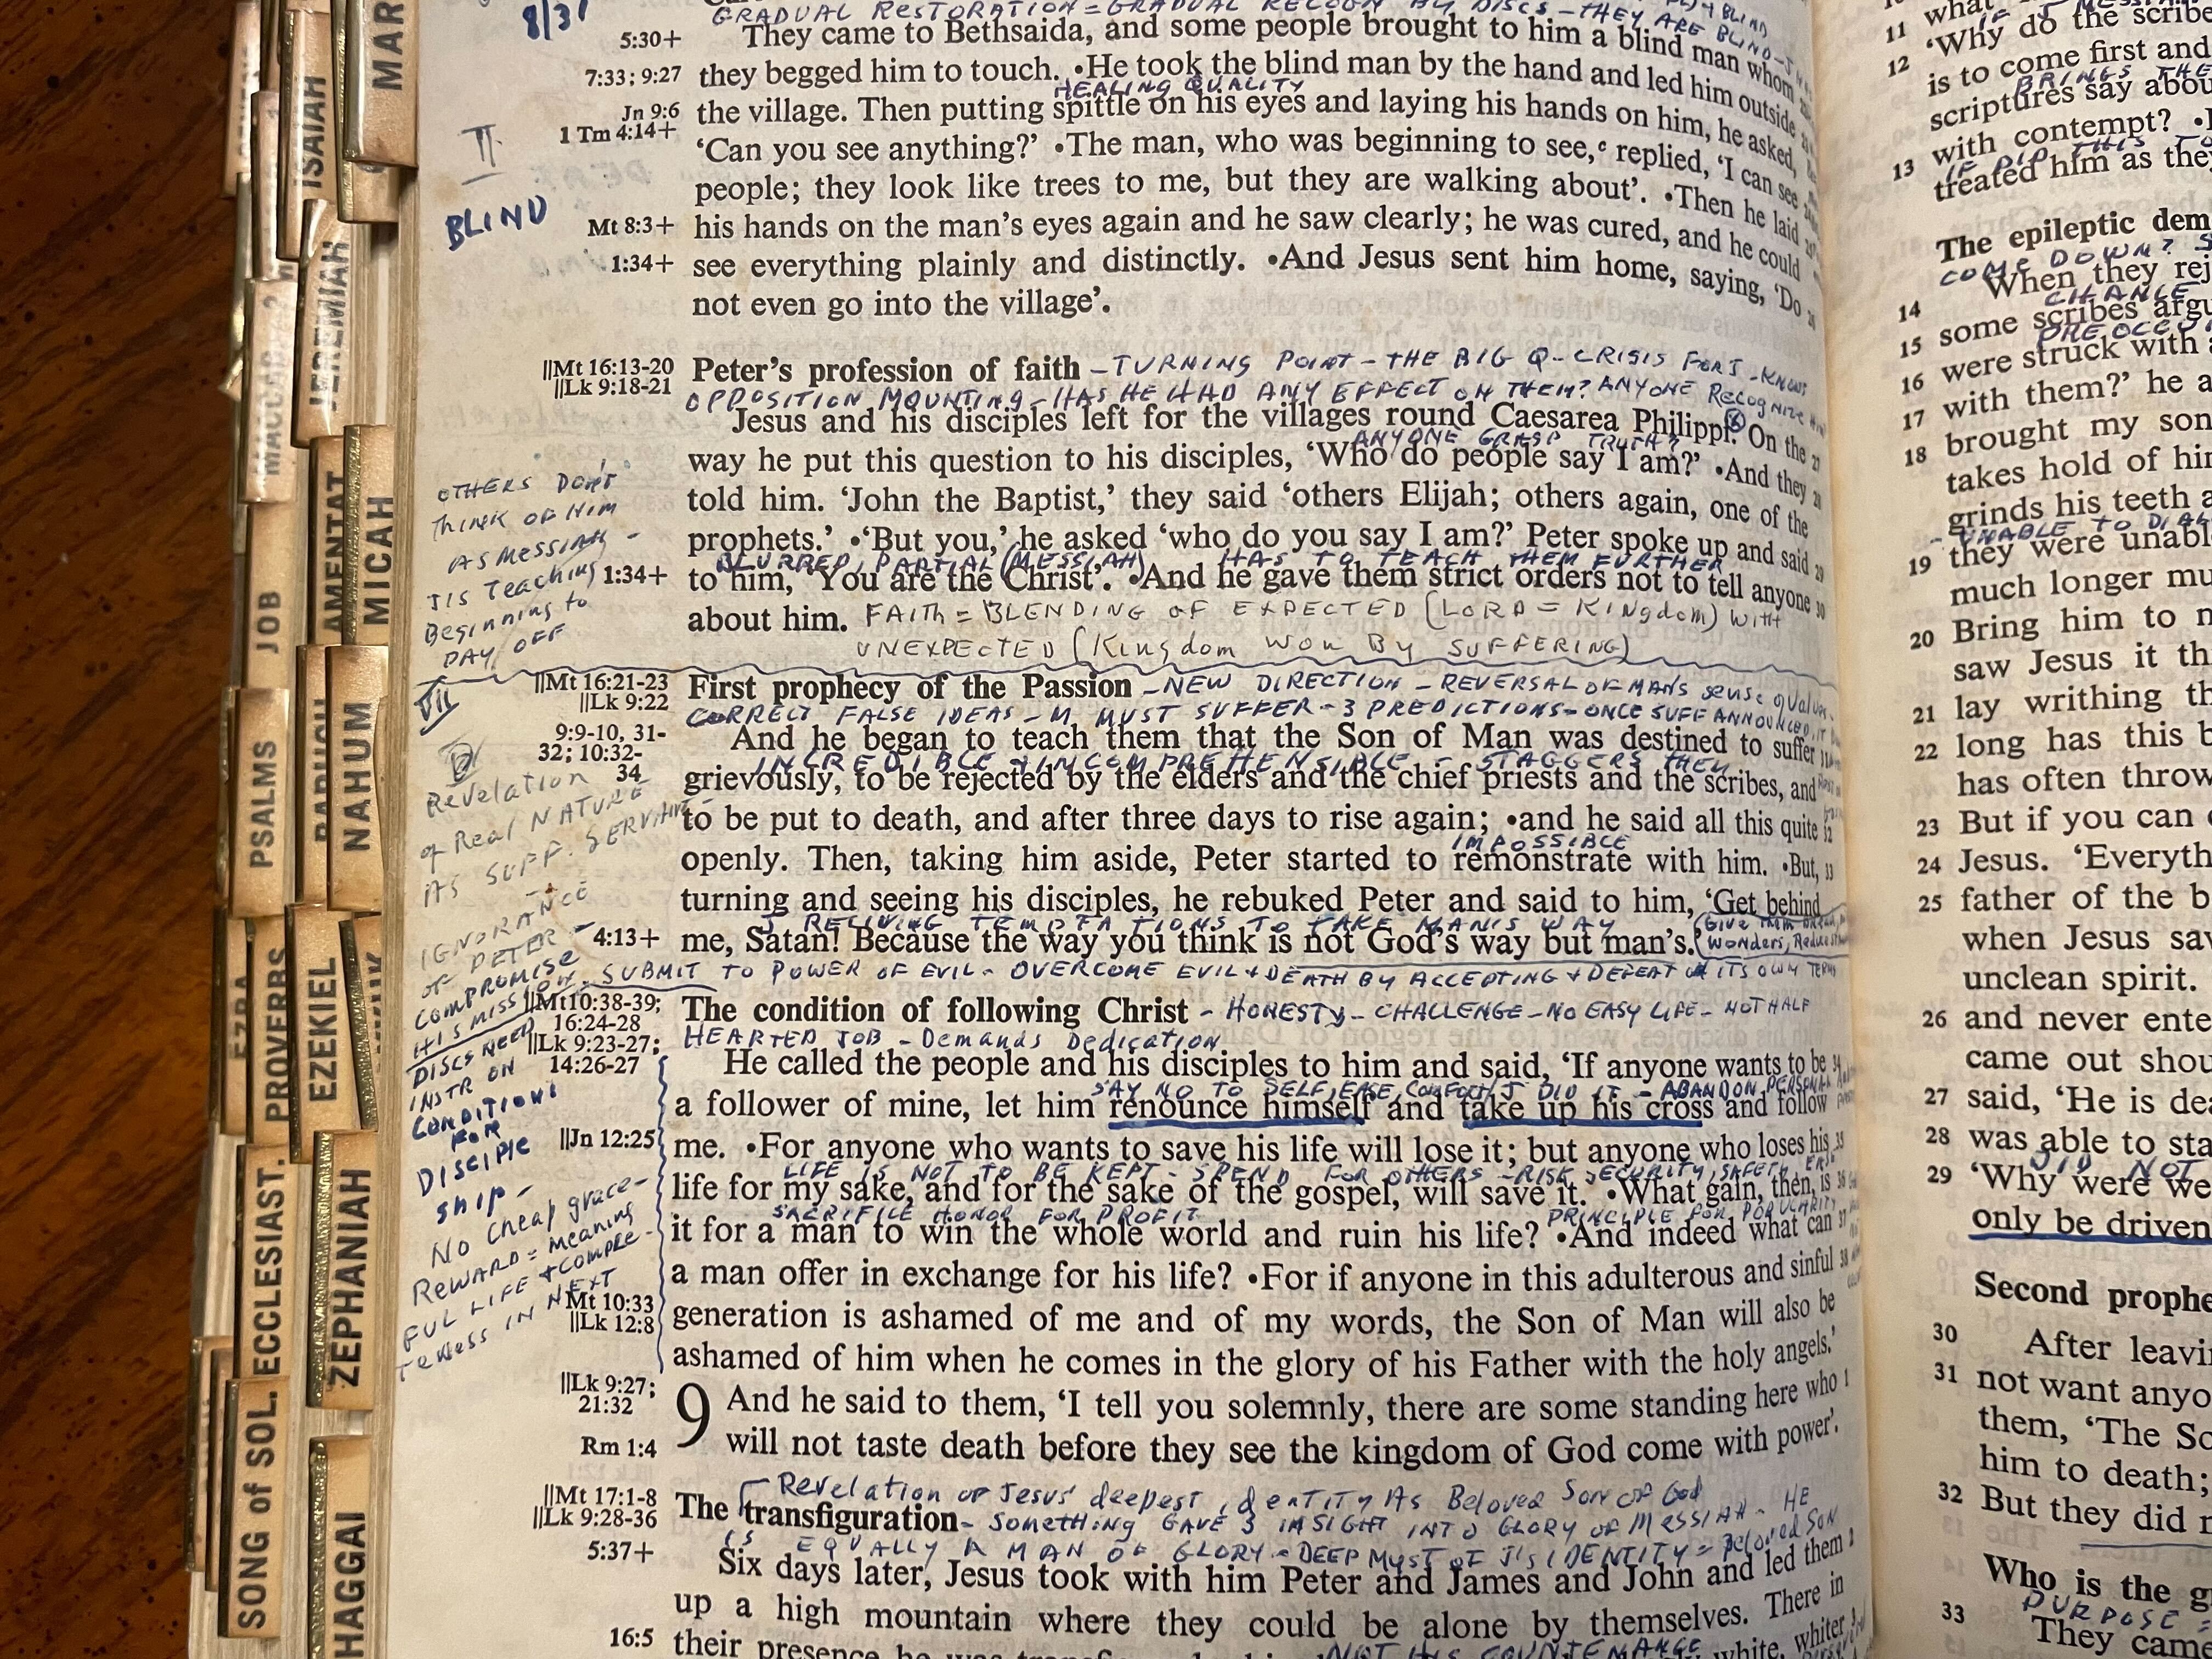 MAR
ISAIAH
JEREMIAH
MICAH
JOB
NAHUM
PSALMS
EZRA
PROVERBS
EZEKIEL
ECCLESIAST.
ZEPHANIAH
SONG of SOL.
HAGGAI
8/31
GRADUAL RESTORATION = GRADUAL RECOGN BY DISCS - THEY ARE BLIND
5:30+ They came to Bethsaida, and some people brought to him a blind man whom
7:33; 9:27 they begged him to touch. •He took the blind man by the hand and led him outside
HEALING QUALITY
Jn 9:6 the village. Then putting spittle on his eyes and laying his hands on him, he asked,
1 Tm 4:14+ 'Can you see anything?' •The man, who was beginning to see,e replied, 'I can see
II
people; they look like trees to me, but they are walking about'. •Then he laid
BLIND
Mt 8:3+ his hands on the man's eyes again and he saw clearly; he was cured, and he could
1:34+ see everything plainly and distinctly. •And Jesus sent him home, saying, 'Do
not even go into the village'.
||Mt 16:13-20 Peter's profession of faith - TURNING POINT - THE BIG Q - CRISIS FOR J - KNOWS
||Lk 9:18-21
OPPOSITION MOUNTING - HAS HE HAD ANY EFFECT ON THEM? ANYONE RECOGNIZE HIM
Jesus and his disciples left for the villages round Caesarea Philippi. On the 27
ANYONE GRASP TRUTH?
way he put this question to his disciples, 'Who do people say I am?' •And they 28
told him. 'John the Baptist,' they said 'others Elijah; others again, one of the
prophets.' •'But you,' he asked 'who do you say I am?' Peter spoke up and said 29
BLURRED, PARTIAL (MESSIAH) HAS TO TEACH THEM FURTHER
1:34+ to him, 'You are the Christ'. •And he gave them strict orders not to tell anyone 30
about him. FAITH = BLENDING OF EXPECTED (LORD = KINGdom) WITH
UNEXPECTED (Kingdom won By SUFFERING)
OTHERS DON'T
THINK OF HIM
AS MESSIAH -
J'S Teaching
Beginning to
PAY OFF
VII
||Mt 16:21-23 First prophecy of the Passion - NEW DIRECTION - REVERSAL OF MANS sense of Values.
||Lk 9:22
CORRECT FALSE IDEAS - M MUST SUFFER - 3 PREDICTIONS - ONCE SUFF ANNOUNCED,
9:9-10, 31-
32; 10:32-
34
And he began to teach them that the Son of Man was destined to suffer 31
INCREDIBLE + INCOMPREHENSIBLE - STAGGERS THEM
grievously, to be rejected by the elders and the chief priests and the scribes, and
to be put to death, and after three days to rise again; •and he said all this quite 32
IMPOSSIBLE
openly. Then, taking him aside, Peter started to remonstrate with him. •But, 33
turning and seeing his disciples, he rebuked Peter and said to him, 'Get behind
J RELIVING TEMPTATIONS TO TAKE MAN'S WAY
4:13+ me, Satan! Because the way you think is not God's way but man's.'
SUBMIT TO POWER OF EVIL - OVERCOME EVIL + DEATH BY ACCEPTING + DEFEAT ITS OWN TERMS
Revelation
of Real NATURE
AS SUFF. SERVANT -
IGNORANCE
OF PETER -
COMPROMISE
HIS MISSION
DISCS NEED
INSTR ON
CONDITIONS
FOR
DISCIPLE
SHIP -
No cheap grace -
REWARD = meaning
FUL LIFE + COMPLE -
Teness IN NEXT
||Mt10:38-39;
16:24-28
||Lk 9:23-27;
14:26-27
The condition of following Christ - HONESTY - CHALLENGE - NO EASY LIFE - NOT HALF
HEARTED JOB - Demands Dedication
He called the people and his disciples to him and said, 'If anyone wants to be 34
SAY NO TO SELF, EASE, COMFORT/J DID IT - ABANDON PERSONAL
a follower of mine, let him renounce himself and take up his cross and follow
||Jn 12:25 me. •For anyone who wants to save his life will lose it; but anyone who loses his 35
LIFE IS NOT TO BE KEPT - SPEND FOR OTHERS - RISK SECURITY, SAFETY, EASE
life for my sake, and for the sake of the gospel, will save it. •What gain, then, is 36
SACRIFICE HONOR FOR PROFIT PRINCIPLE FOR POPULARITY
it for a man to win the whole world and ruin his life? •And indeed what can 37
a man offer in exchange for his life? •For if anyone in this adulterous and sinful 38
Mt 10:33
||Lk 12:8
generation is ashamed of me and of my words, the Son of Man will also be
ashamed of him when he comes in the glory of his Father with the holy angels.'
||Lk 9:27;
21:32
9 And he said to them, 'I tell you solemnly, there are some standing here who 1
Rm 1:4 will not taste death before they see the kingdom of God come with power'.
Revelation of Jesus' deepest identity As Beloved Son of God
||Mt 17:1-8
||Lk 9:28-36
The transfiguration - SOMETHING GAVE 3 INSIGHT INTO GLORY OF MESSIAH - HE
IS EQUALLY A MAN OF GLORY - DEEP MYST OF J'S IDENTITY = Beloved SON
5:37+ Six days later, Jesus took with him Peter and James and John and led them 2
up a high mountain where they could be alone by themselves. There in
16:5 their presence he was
NOT HIS COUNTENANCE
white, whiter 3
11 what
12 'Why do the scribe
is to come first and
BRINGS THE
scriptures say abou
with contempt?
IF DID THIS TO
13 treated him as they
The epileptic dem
COME DOWN?
14 When they rej
CHANGE
15 some scribes argu
PREOCCU
16 were struck with
17 with them?' he a
18 brought my son
takes hold of hi
grinds his teeth a
- UNABLE TO DIAL
19 they were unabl
much longer mu
20 Bring him to m
saw Jesus it th
21 lay writhing th
22 long has this b
has often throw
23 But if you can
24 Jesus. 'Everyth
25 father of the b
when Jesus saw
unclean spirit.
26 and never ente
came out shou
27 said, 'He is dea
28 was able to sta
DID NOT
29 'Why were we
only be driven
Second prophe
30 After leavi
31 not want anyo
them, 'The So
him to death;
32 But they did n
Who is the g
PURPOSE =
33 They came